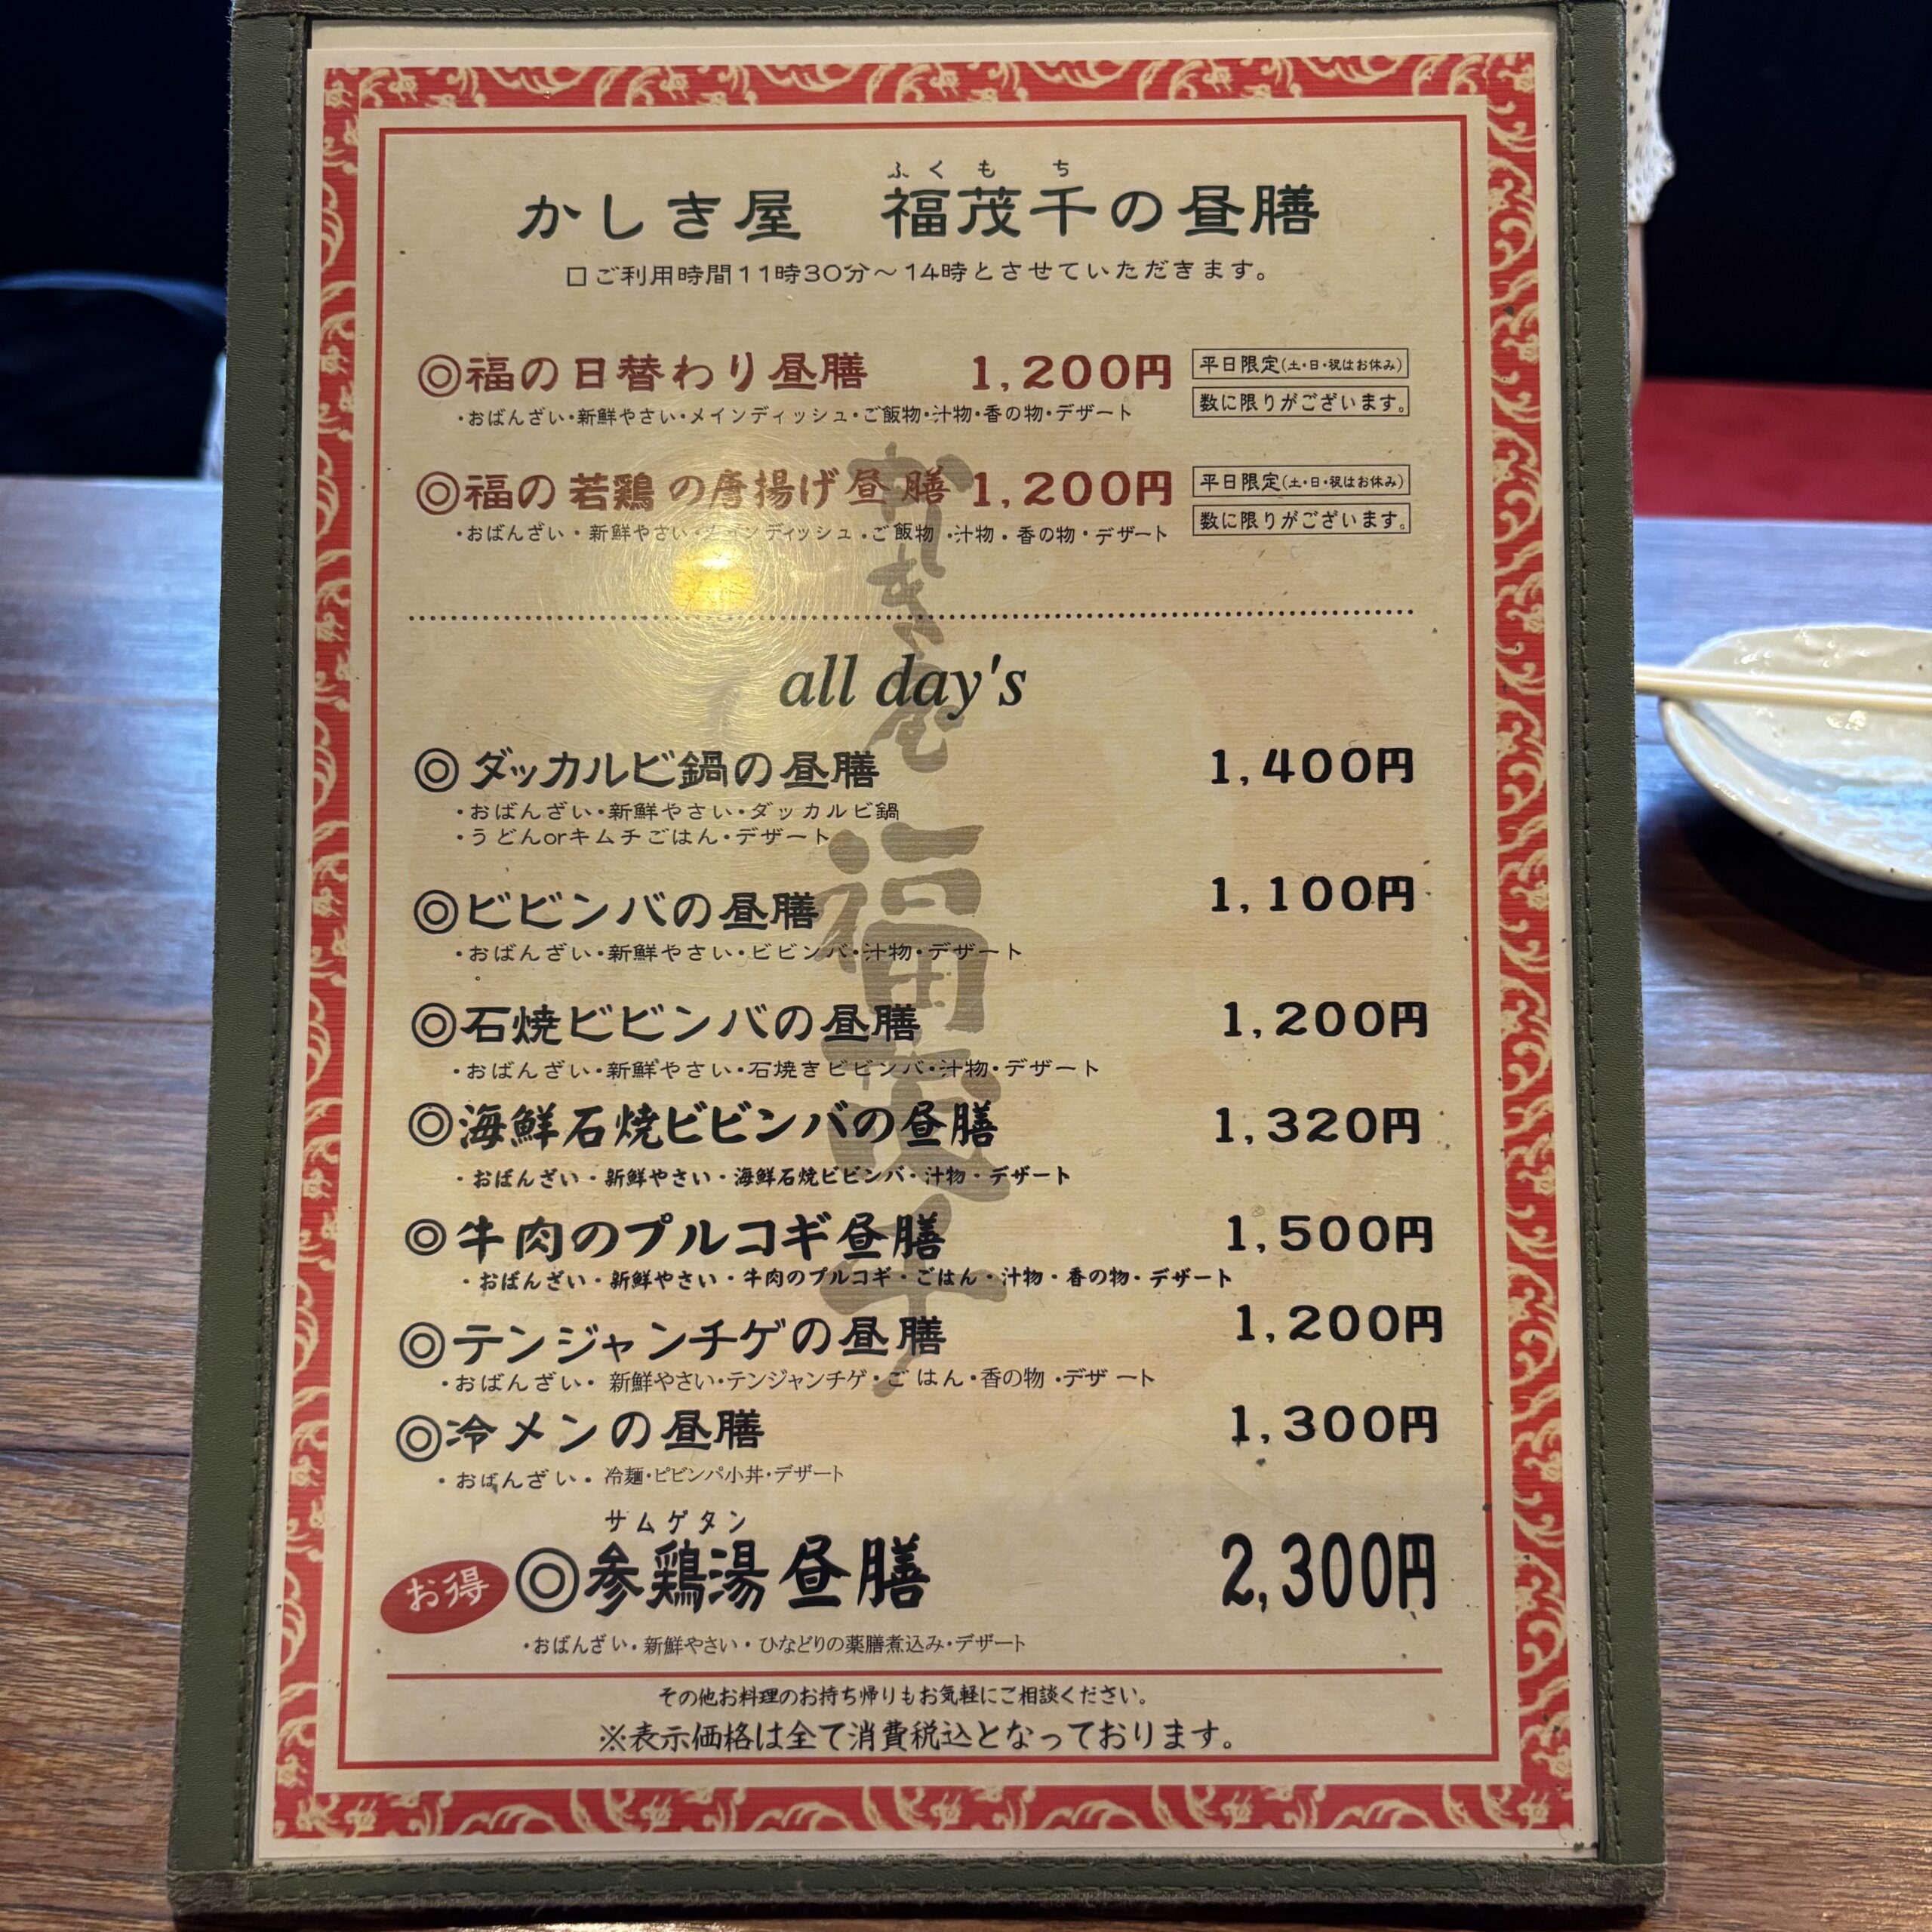 ふくもち
かしき屋 福茂千の昼膳
□ご利用時間11時30分～14時とさせていただきます。
◎福の日替わり昼膳 1,200円 平日限定(土・日・祝はお休み)
数に限りがございます。
・おばんざい・新鮮やさい・メインディッシュ・ご飯物・汁物・香の物・デザート
◎福の若鶏の唐揚げ昼膳 1,200円 平日限定(土・日・祝はお休み)
数に限りがございます。
・おばんざい・新鮮やさい・メインディッシュ・ご飯物・汁物・香の物・デザート
all day's
◎ダッカルビ鍋の昼膳 1,400円
・おばんざい・新鮮やさい・ダッカルビ鍋
・うどんorキムチごはん・デザート
◎ビビンバの昼膳 1,100円
・おばんざい・新鮮やさい・ビビンバ・汁物・デザート
◎石焼ビビンバの昼膳 1,200円
・おばんざい・新鮮やさい・石焼きビビンバ・汁物・デザート
◎海鮮石焼ビビンバの昼膳 1,320円
・おばんざい・新鮮やさい・海鮮石焼ビビンバ・汁物・デザート
◎牛肉のプルコギ昼膳 1,500円
・おばんざい・新鮮やさい・牛肉のプルコギ・ごはん・汁物・香の物・デザート
◎テンジャンチゲの昼膳 1,200円
・おばんざい・新鮮やさい・テンジャンチゲ・ごはん・香の物・デザート
◎冷メンの昼膳 1,300円
・おばんざい・冷麺・ピビンパ小丼・デザート
サムゲタン
お得 ◎参鶏湯昼膳 2,300円
・おばんざい・新鮮やさい・ひなどりの薬膳煮込み・デザート
その他お料理のお持ち帰りもお気軽にご相談ください。
※表示価格は全て消費税込となっております。
かしき屋 福茂千